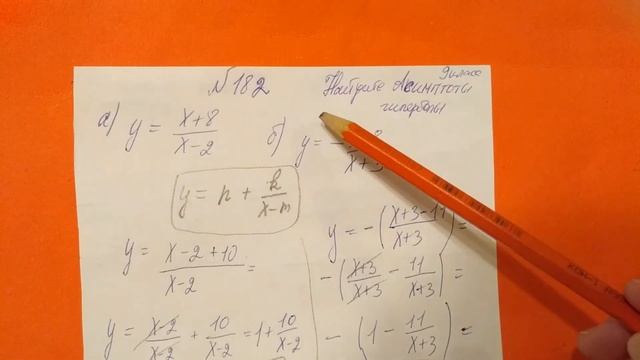 №182
Найдите Асимптоты
9 класс
гиперболы
а) y = \frac{x+8}{x-2}
б) y =
y = n + \frac{k}{x-m}
y = \frac{x-2+10}{x-2} =
y = \frac{x-2}{x-2} + \frac{10}{x-2} = 1 + \frac{10}{x-2}
y = -(\frac{x+3-11}{x+3}) =
-(\frac{x+3}{x+3} - \frac{11}{x+3}) =
-(1 - \frac{11}{x+3}) =